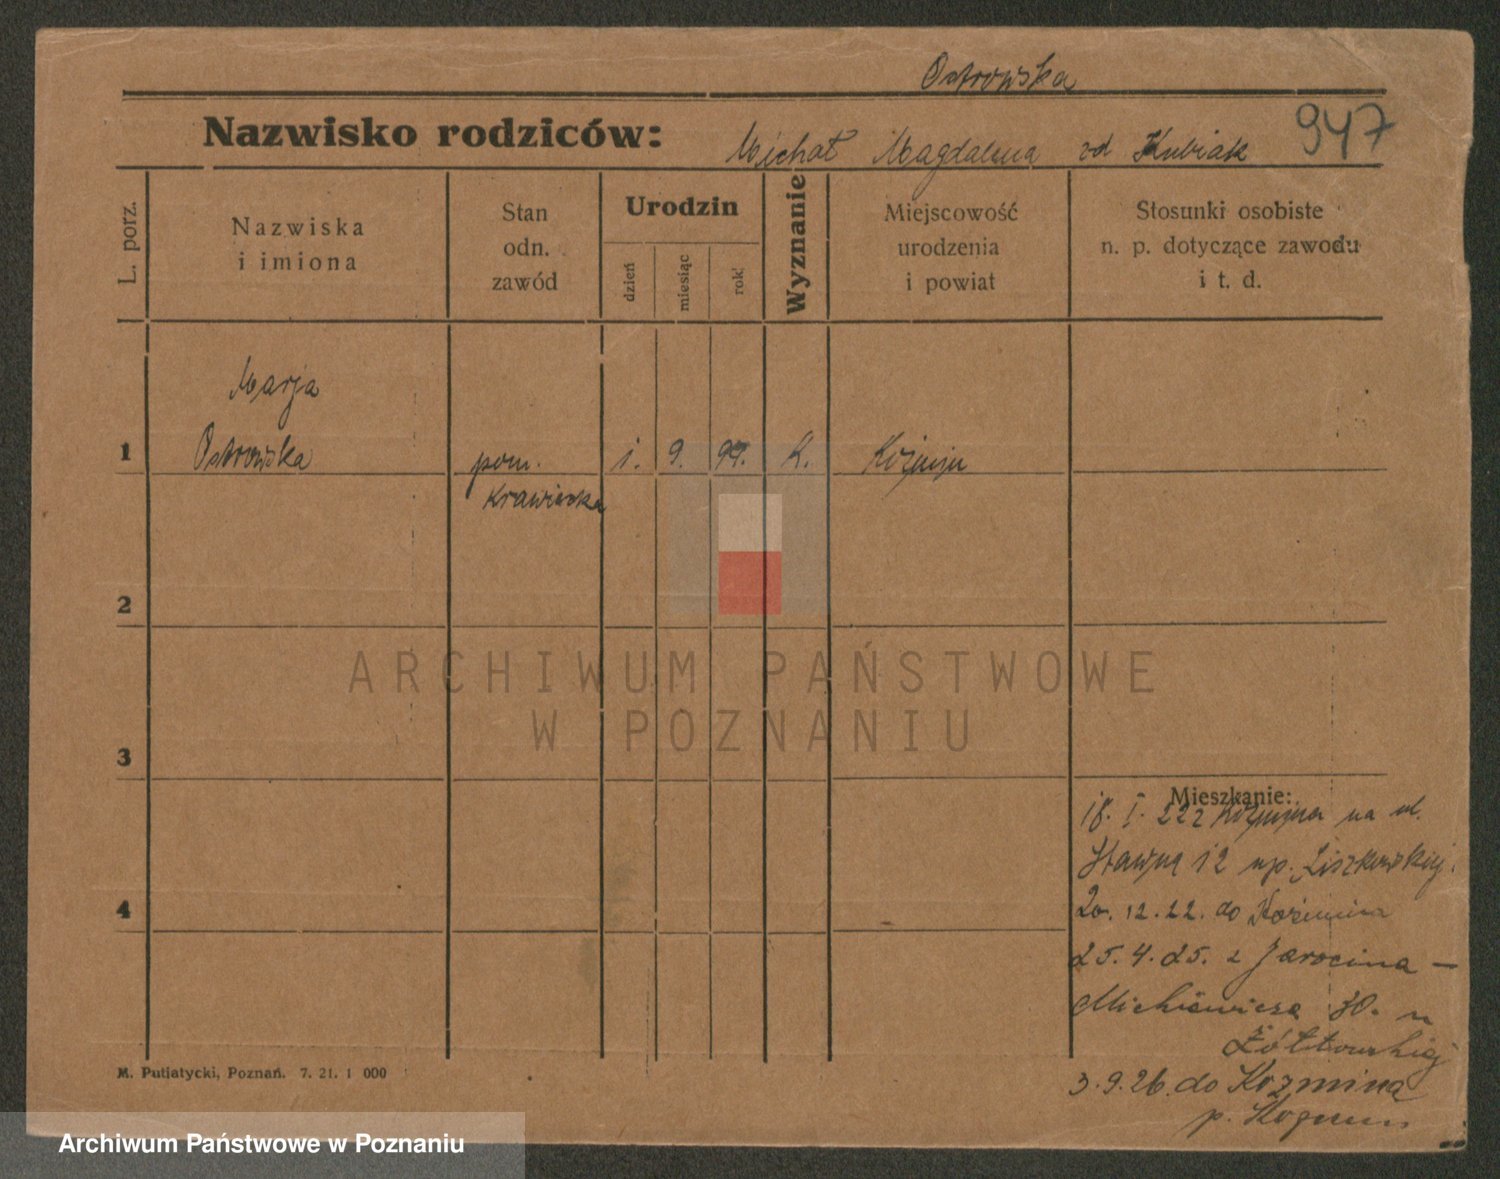 Ostrowska
Nazwisko rodziców: Michał Magdalena od Kubiak 947
L. porz.
Nazwiska
i imiona
Stan
odn.
zawód
Urodzin
dzień
miesiąc
rok
Wyznanie
Miejscowość
urodzenia
i powiat
Stosunki osobiste
n. p. dotyczące zawodu
i t. d.
Marja
1 Ostrowska pom. 1. 9. 99. k.
krawiecka
2
3
4
Mieszkanie:
18. I. 22 z Kozmina na ul.
Stawną 12 up. Liszkowskiej
20. 12. 22. do Kozmina
25. 4. 25. z Jarocina —
Mickiewicza 30. u
Żółtowskiej
3. 9. 26. do Kozmina
M. Putiatycki, Poznań. 7. 21. 1 000
ARCHIWUM PAŃSTWOWE
W POZNANIU
Archiwum Państwowe w Poznaniu